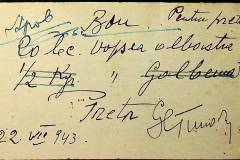 Aprob Bon Pentru pre
20 bc. vopsea albastra
1/2 Kgr. " Galbena
Pretor
22. VII 943.